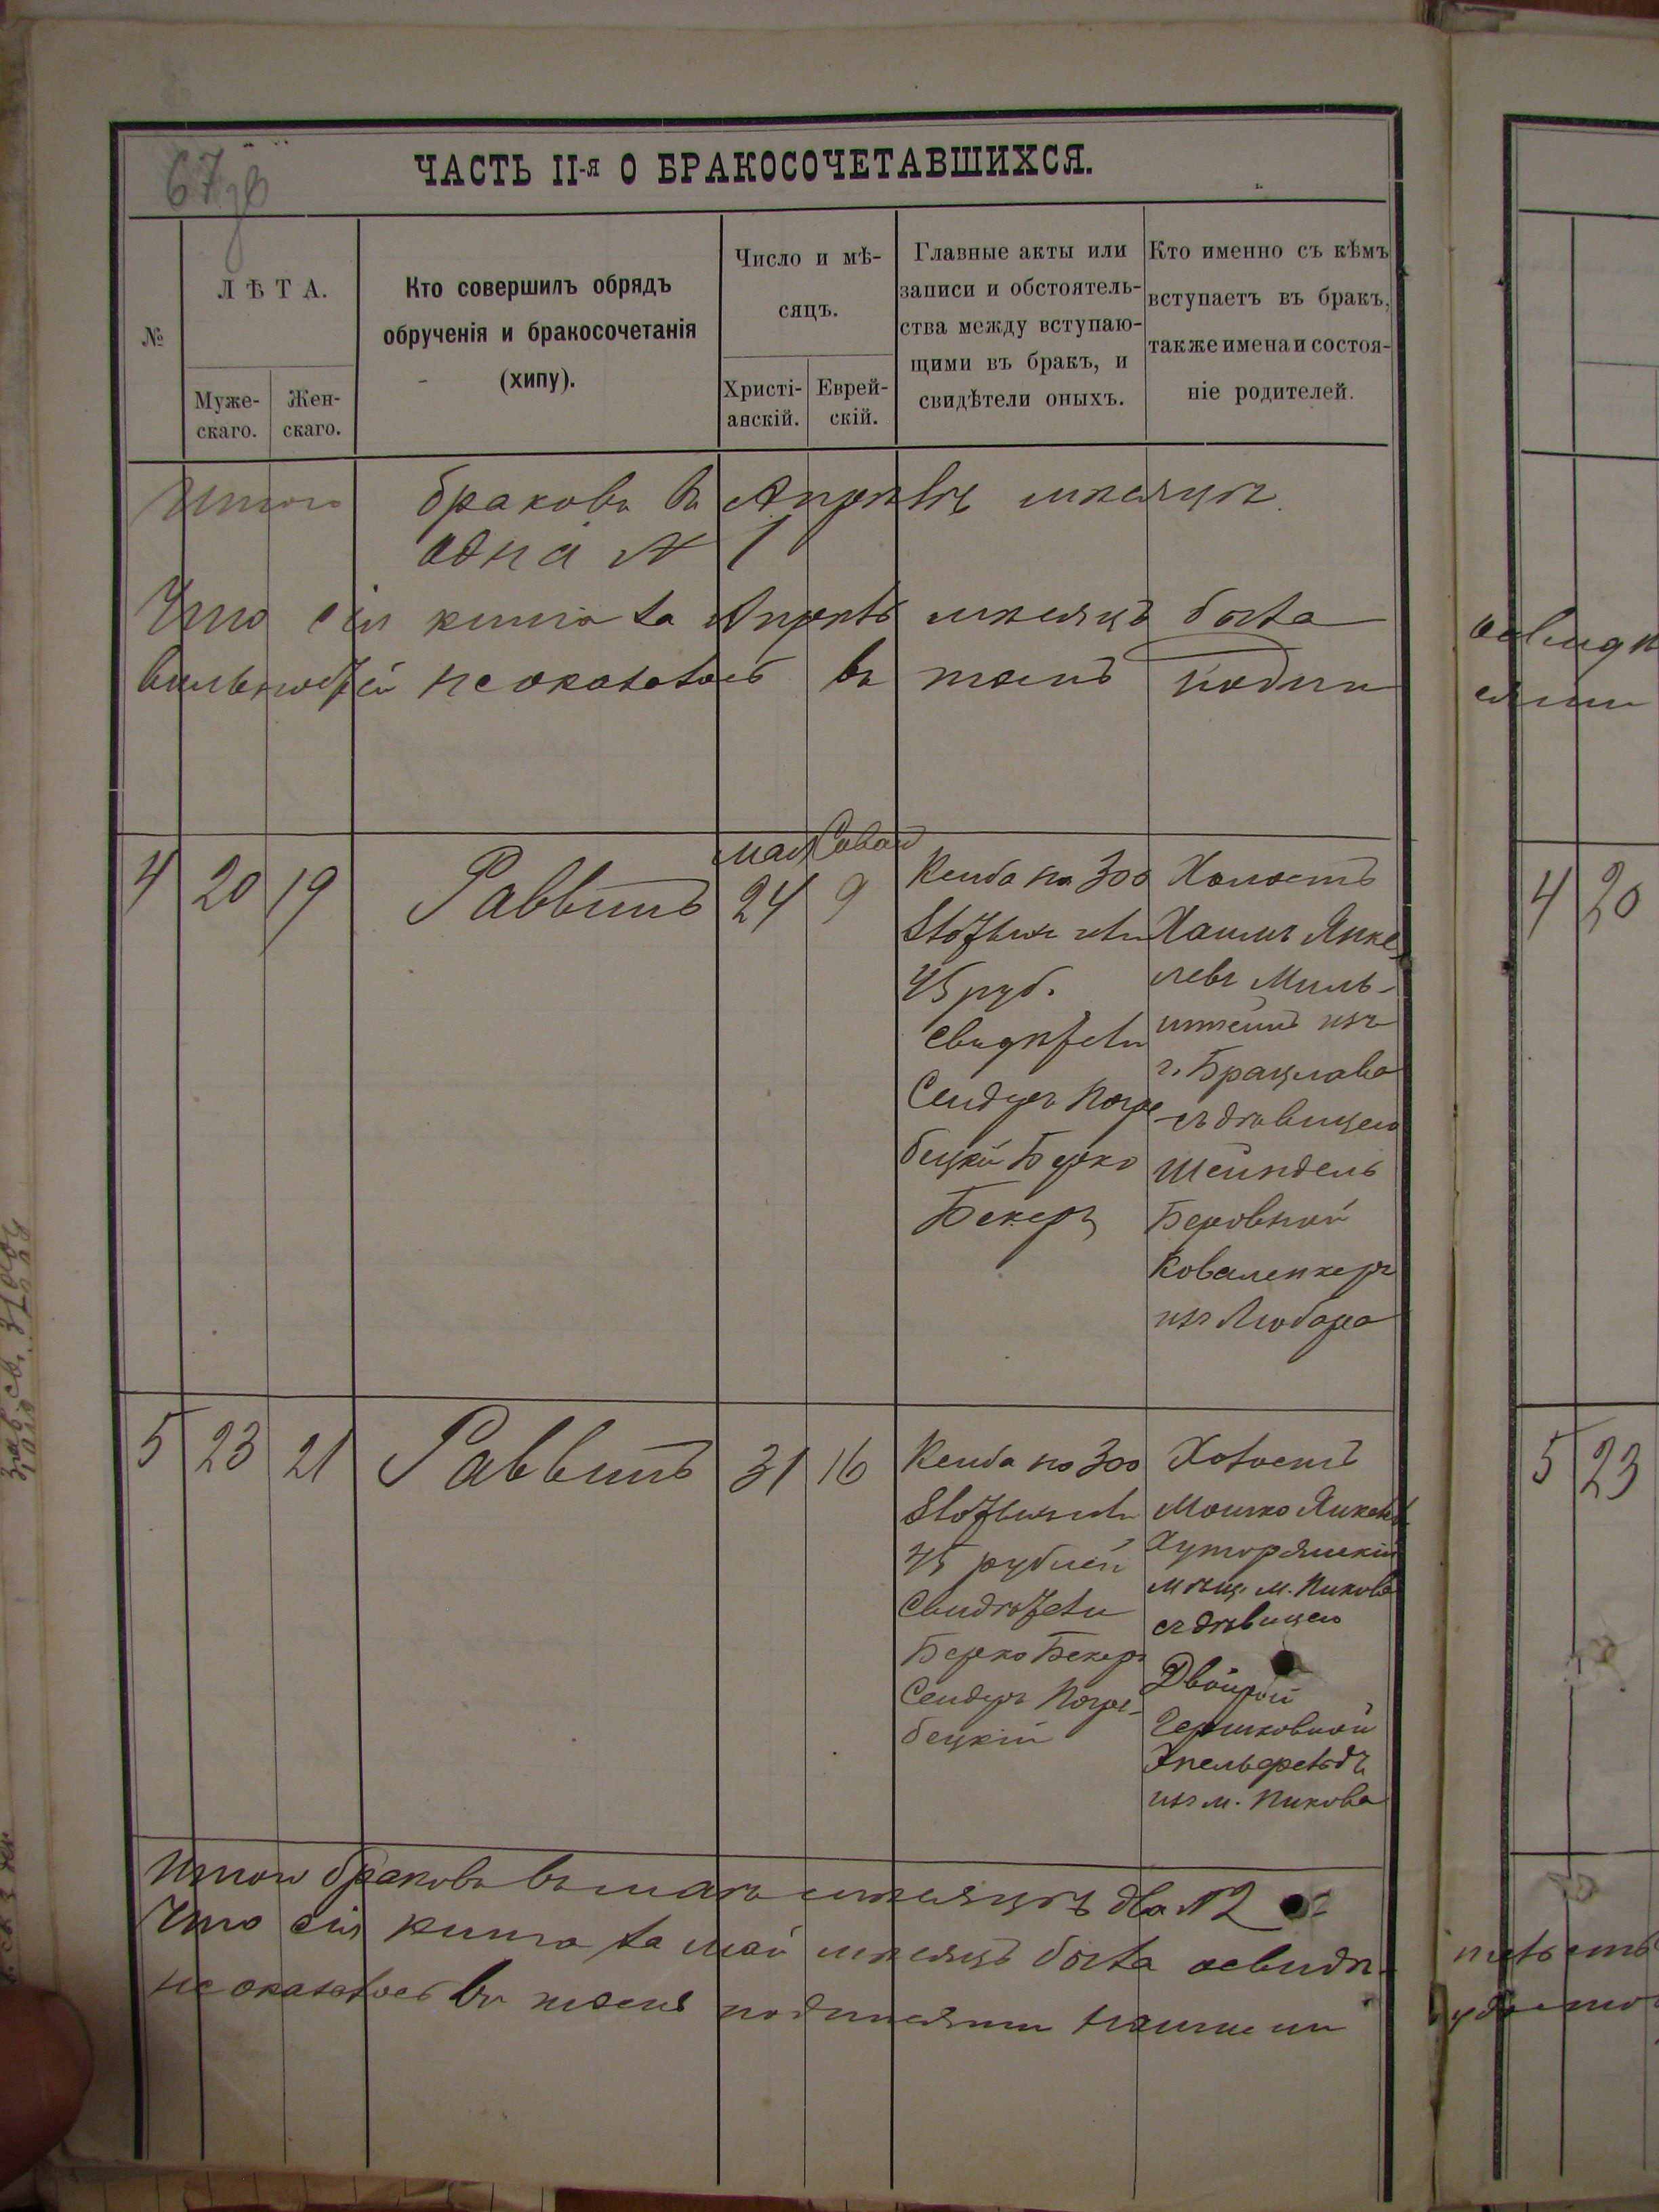 67 зв
ЧАСТЬ II-я О БРАКОСОЧЕТАВШИХСЯ.
№
ЛѢТА.
Муже-
скаго.
Жен-
скаго.
Кто совершилъ обрядъ
обрученія и бракосочетанія
(хипу).
Число и мѣ-
сяцъ.
Христі-
анскій.
Еврей-
скій.
Главные акты или
записи и обстоятель-
ства между вступаю-
щими въ бракъ, и
свидѣтели оныхъ.
Кто именно съ кѣмъ
вступаетъ въ бракъ,
также имена и состоя-
ніе родителей.
Итого браковъ въ Апрѣлѣ мѣсяцѣ
одна № 1
Что сія книга за Апрѣль мѣсяцъ была
не оказалось въ томъ
4 20 19 Раввинъ
мая
24 9
Кетба на 300
злотыхъ или
45 руб.
свидѣтели
Сендеръ Погре-
бецкій Берко
Бекеръ
Холостъ
Хаимъ Янке-
левъ Миль-
штейнъ изъ
г. Брацлава
съ дѣвицею
Шейндель
Беровной
Коваленкеръ
изъ Любара
5 23 21 Раввинъ 31 16
Кетба на 300
злотыхъ или
45 рублей
Свидѣтели
Берко Бекеръ
Сендеръ Погре-
бецкій
Холостъ
Мошко Янкел
Хуторянскій
мѣщ. м. Пикова
съ дѣвицею
Двойрой
Гершковной
изъ м. Пикова
Итого браковъ въ маѣ мѣсяцѣ два №2
Что сія книга за май мѣсяцъ была освидѣ-
не оказалось въ томъ подписями нашими
4 20
5 23